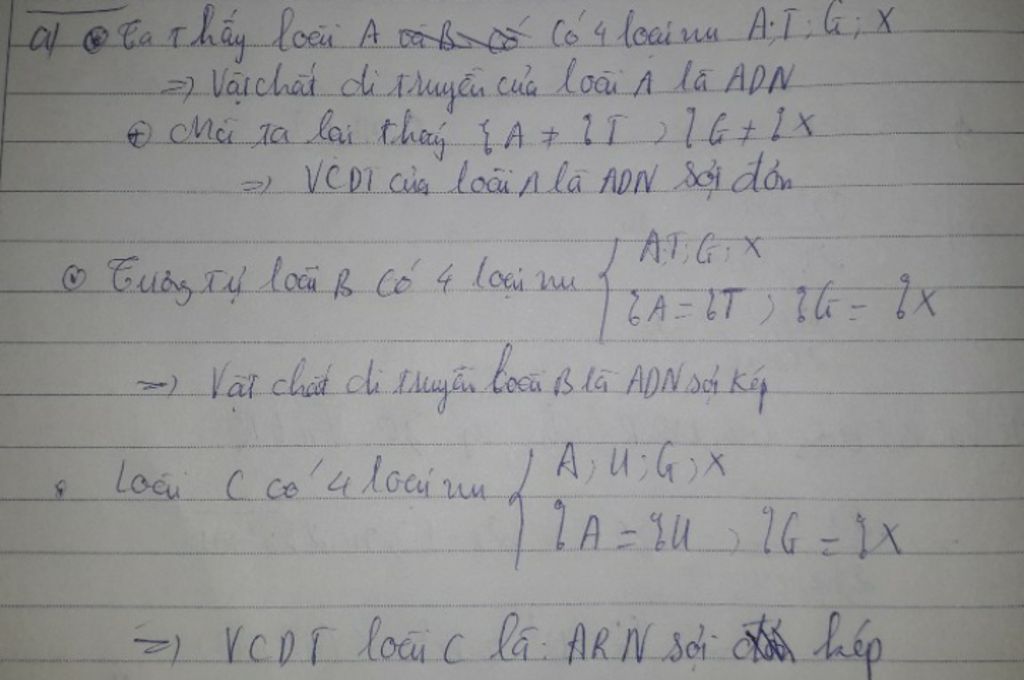 a) Ta thấy loài A có 4 loại nu A; T; G; X
=> Vật chất di truyền của loài A là ADN
+ Mà ta lại thấy % A ≠ % T ; % G ≠ % X
=> VCDT của loài A là ADN sợi đơn
Tương tự loài B có 4 loại nu { A; T; G; X
% A = % T ; % G = % X
=> Vật chất di truyền loài B là ADN sợi kép
Loài C có 4 loại nu { A; U; G; X
% A = % U ; % G = % X
=> VCDT loài C là: ARN sợi kép